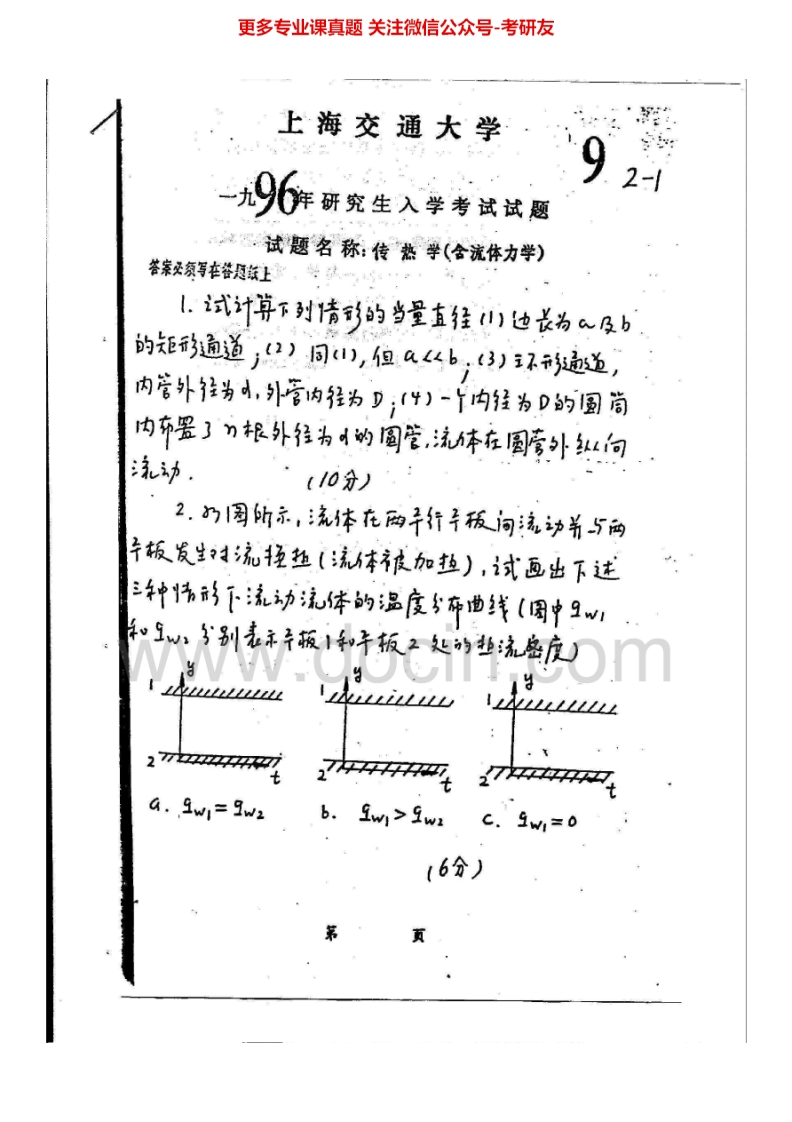 更多专业课真题 关注微信公众号-考研友
上海交通大学
9 2-1
一九96年研究生入学考试试题
试题名称:传热学(含流体力学)
答案必须写在答题纸上
1. 试计算下列情形的当量直径(1)边长为a及b
的矩形通道;(2)同(1),但a<<b;(3)环形通道,
内管外径为d,外管内径为D;(4)一个内径为D的圆筒
内布置了n根外径为d的圆管,流体在圆管外纵向
流动.
(10分)
2. 如图所示,流体在两平行平板间流动并与两
平板发生对流换热(流体被加热),试画出下述
三种情形下流动流体的温度分布曲线(图中qw1
和qw2分别表示平板1和平板2处的热流密度)
www.docin.com
1 y 1 y 1 y
2 t 2 t 2 t
a. qw1=qw2 b. qw1>qw2 c. qw1=0
(6分)
第 页